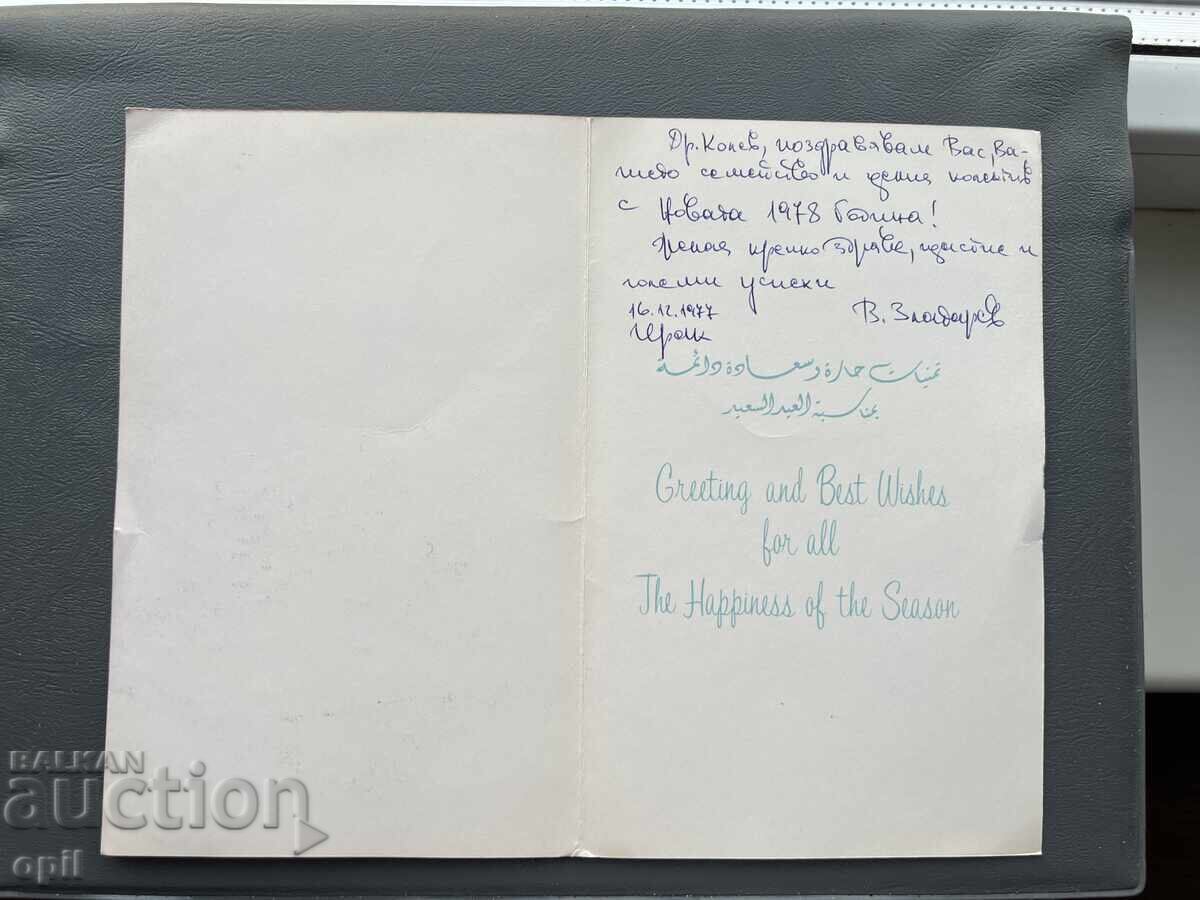 Др. Колев, поздравявам Вас, Ва-
шето семейство и целия колектив
с Новата 1978 Година!
Желая крепко здраве, щастие и
големи успехи
16.12.1977 В. Златарев
Ирак
تمنيات حارة وسعادة دائمة
بمناسبة العيد السعيد
Greeting and Best Wishes
for all
The Happiness of the Season
BALKAN
auction
opil